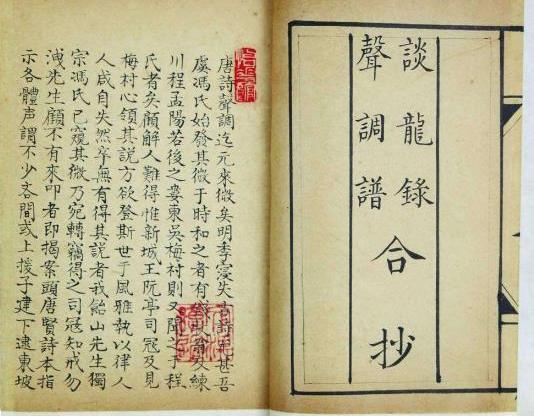 談龍錄
聲調譜
合抄
唐詩聲調迄元來微矣明季寖失古詩尤甚吾
虞馮氏始發其微于時和之者有錢牧翁及練
川程孟陽若後之婁東吳梅村則又聞之于程
氏者矣顧解人難得惟新城王阮亭司寇及見
梅村心領其說方欲登斯世于風雅執以律人
人咸自失然卒無有得其說者我飴山先生獨
宗馮氏已窺其微乃宛轉竊得之司寇知戒勿
洩先生顧不有來叩者即揭案頭唐賢詩本指
示各體声調不少吝間或上援子建下逮東坡